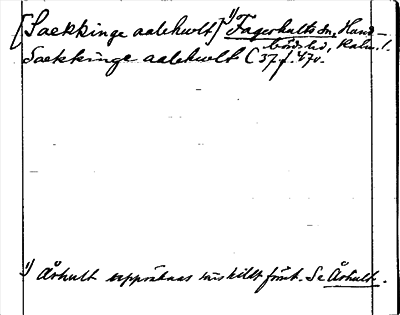 [Saekkinge aalehwlt] ¹) Fagerhults sn, Hand-
börds hd, Kalm. l.
Saekkinge aalehwlt C 37 f. 470.
¹) Århult uppräknas särskildt först. Se Århult.